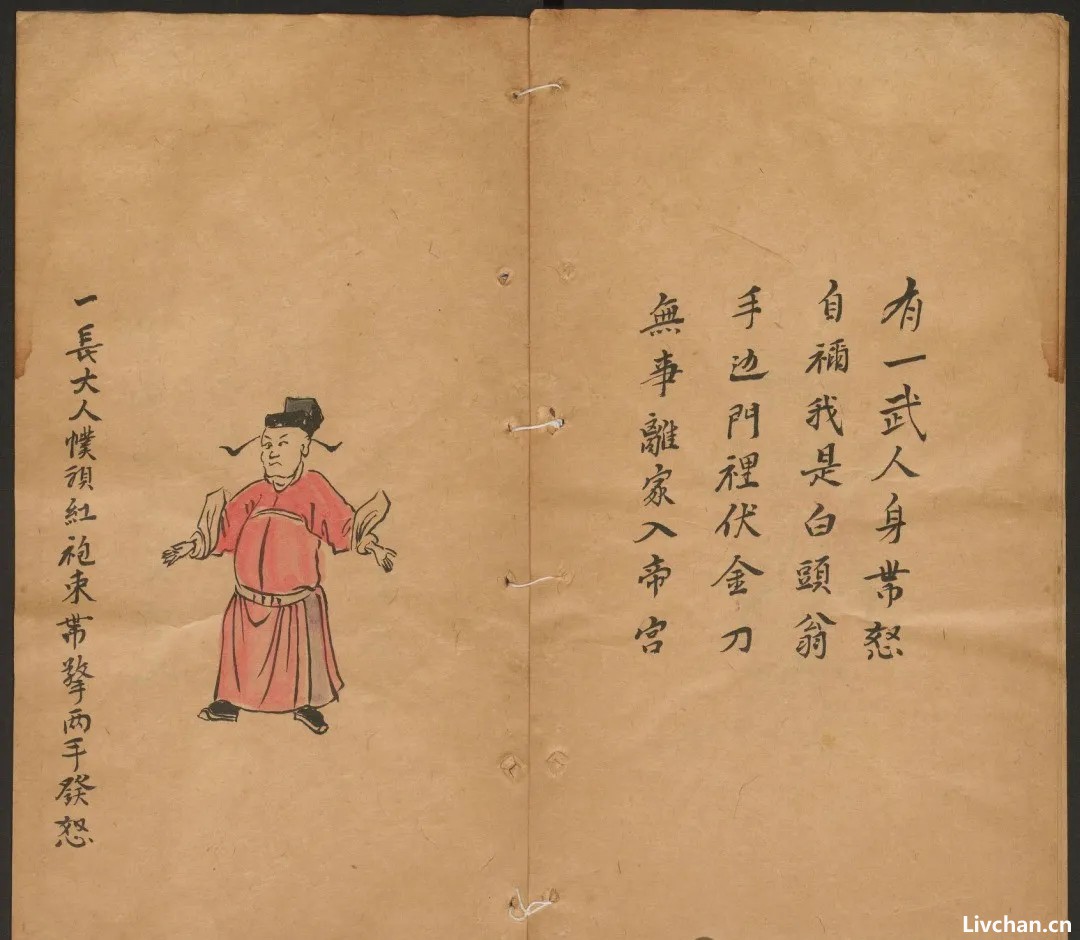 有一武人身帶怒
自稱我是白頭翁
手边門裡伏金刀
無事離家入帝宮
一長大人幞頭紅袍束帶擎兩手發怒
Livchan.cn